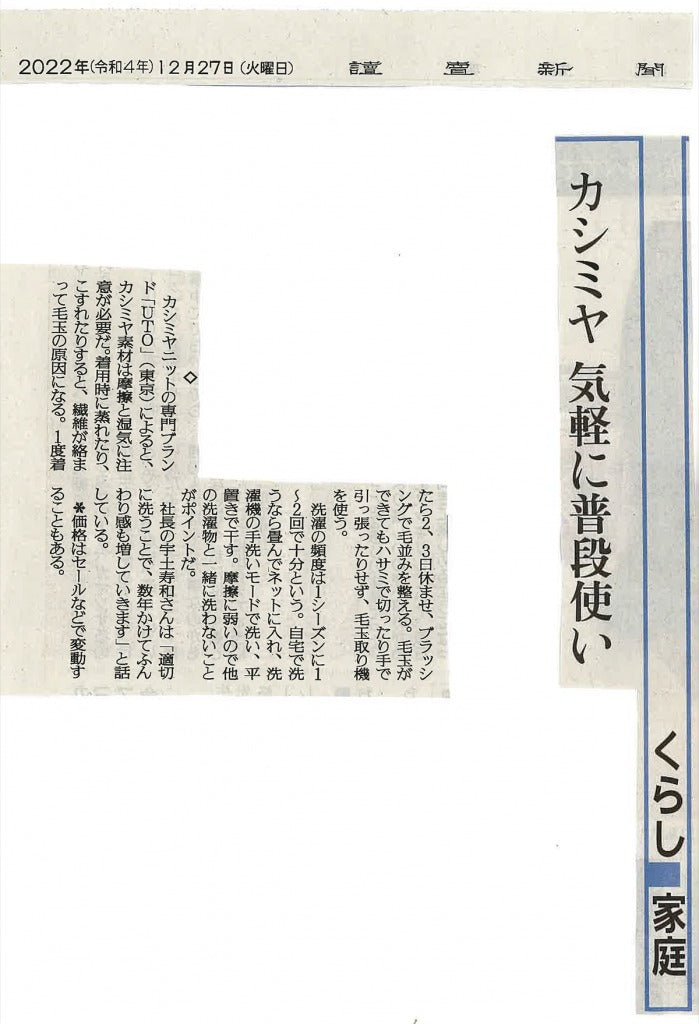 2022年(令和4年)12月27日(火曜日)
讀賣新聞
くらし 家庭
カシミヤ 気軽に普段使い
◇
カシミヤニットの専門ブラン
ド「UTO」(東京)によると、
カシミヤ素材は摩擦と湿気に注
意が必要だ。着用時に蒸れたり、
こすれたりすると、繊維が絡ま
って毛玉の原因になる。1度着
たら2、3日休ませ、ブラッシ
ングで毛並みを整える。毛玉が
できてもハサミで切ったり手で
引っ張ったりせず、毛玉取り機
を使う。
洗濯の頻度は1シーズンに1
~2回で十分という。自宅で洗
うなら畳んでネットに入れ、洗
濯機の手洗いモードで洗い、平
置きで干す。摩擦に弱いので他
の洗濯物と一緒に洗わないこと
がポイントだ。
社長の宇土寿和さんは「適切
に洗うことで、数年かけてふん
わり感も増していきます」と話
している。
＊価格はセールなどで変動す
ることもある。